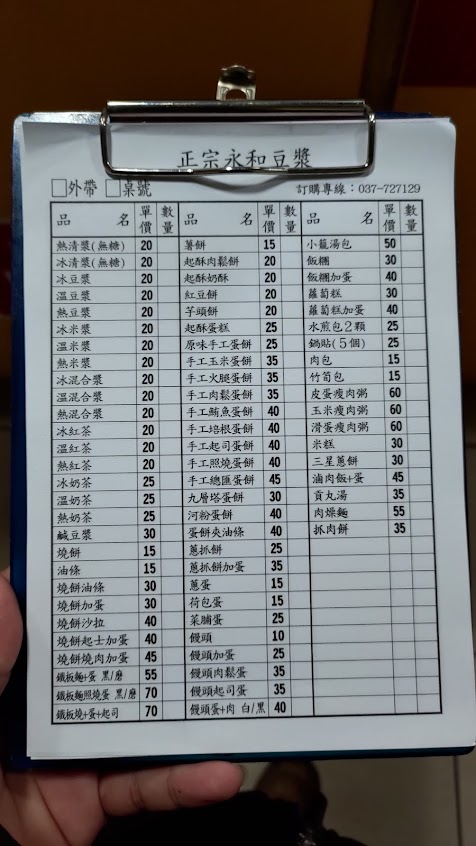 正宗永和豆漿
□外帶 □桌號 訂購專線：037-727129
品 名 單價 數量
熱清漿(無糖) 20
冰清漿(無糖) 20
冰豆漿 20
溫豆漿 20
熱豆漿 20
冰米漿 20
溫米漿 20
熱米漿 20
冰混合漿 20
溫混合漿 20
熱混合漿 20
冰紅茶 20
溫紅茶 20
熱紅茶 20
冰奶茶 25
溫奶茶 25
熱奶茶 25
鹹豆漿 30
燒餅 15
油條 15
燒餅油條 30
燒餅加蛋 30
燒餅沙拉 40
燒餅起士加蛋 40
燒餅燒肉加蛋 45
鐵板麵+蛋 黑/磨 55
鐵板麵照燒蛋 黑/磨 70
鐵板燒+蛋+起司 70
品 名 單價 數量
薯餅 15
起酥肉鬆餅 20
起酥奶酥 20
紅豆餅 20
芋頭餅 20
起酥蛋糕 25
原味手工蛋餅 25
手工玉米蛋餅 35
手工火腿蛋餅 35
手工肉鬆蛋餅 35
手工鮪魚蛋餅 40
手工培根蛋餅 40
手工起司蛋餅 40
手工照燒蛋餅 40
手工總匯蛋餅 45
九層塔蛋餅 30
河粉蛋餅 40
蛋餅夾油條 40
蔥抓餅 25
蔥抓餅加蛋 35
蔥蛋 15
荷包蛋 15
菜脯蛋 25
饅頭 10
饅頭加蛋 25
饅頭肉鬆蛋 35
饅頭起司蛋 35
饅頭蛋+肉 白/黑 40
品 名 單價 數量
小籠湯包 50
飯糰 30
飯糰加蛋 40
蘿蔔糕 30
蘿蔔糕加蛋 40
水煎包2顆 25
鍋貼(5個) 25
肉包 15
竹筍包 15
皮蛋瘦肉粥 60
玉米瘦肉粥 60
滑蛋瘦肉粥 60
米糕 30
三星蔥餅 30
滷肉飯+蛋 45
貢丸湯 35
肉燥麵 55
抓肉餅 35